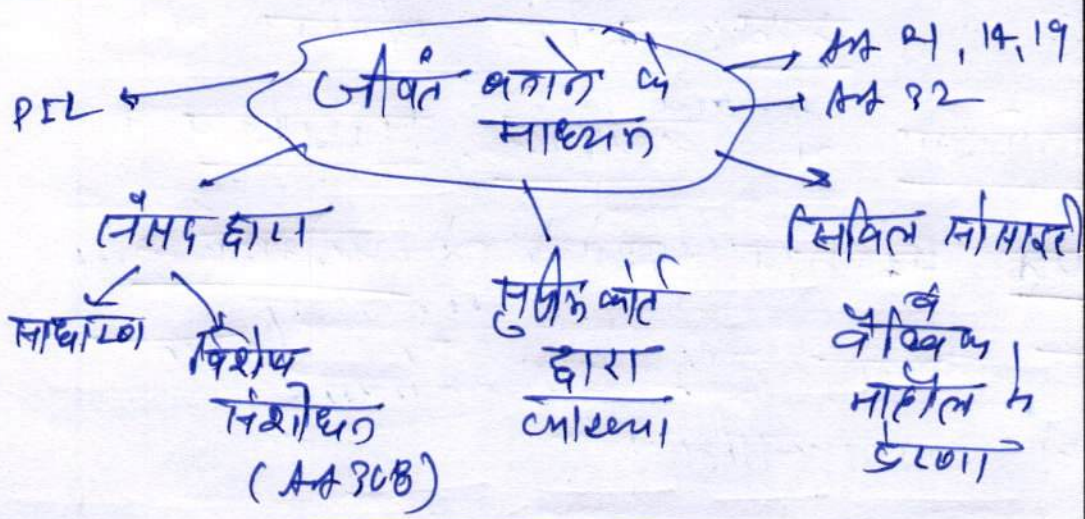 जीवंत बनाने के
माध्यम
PIL
AA 21, 14, 19
AA 32
संसद द्वारा
साधारण
विशेष
संशोधन
(AA 368)
सुप्रीम कोर्ट
द्वारा
व्याख्या
सिविल सोसाइटी
व
वैश्विक
माहौल से
प्रेरणा